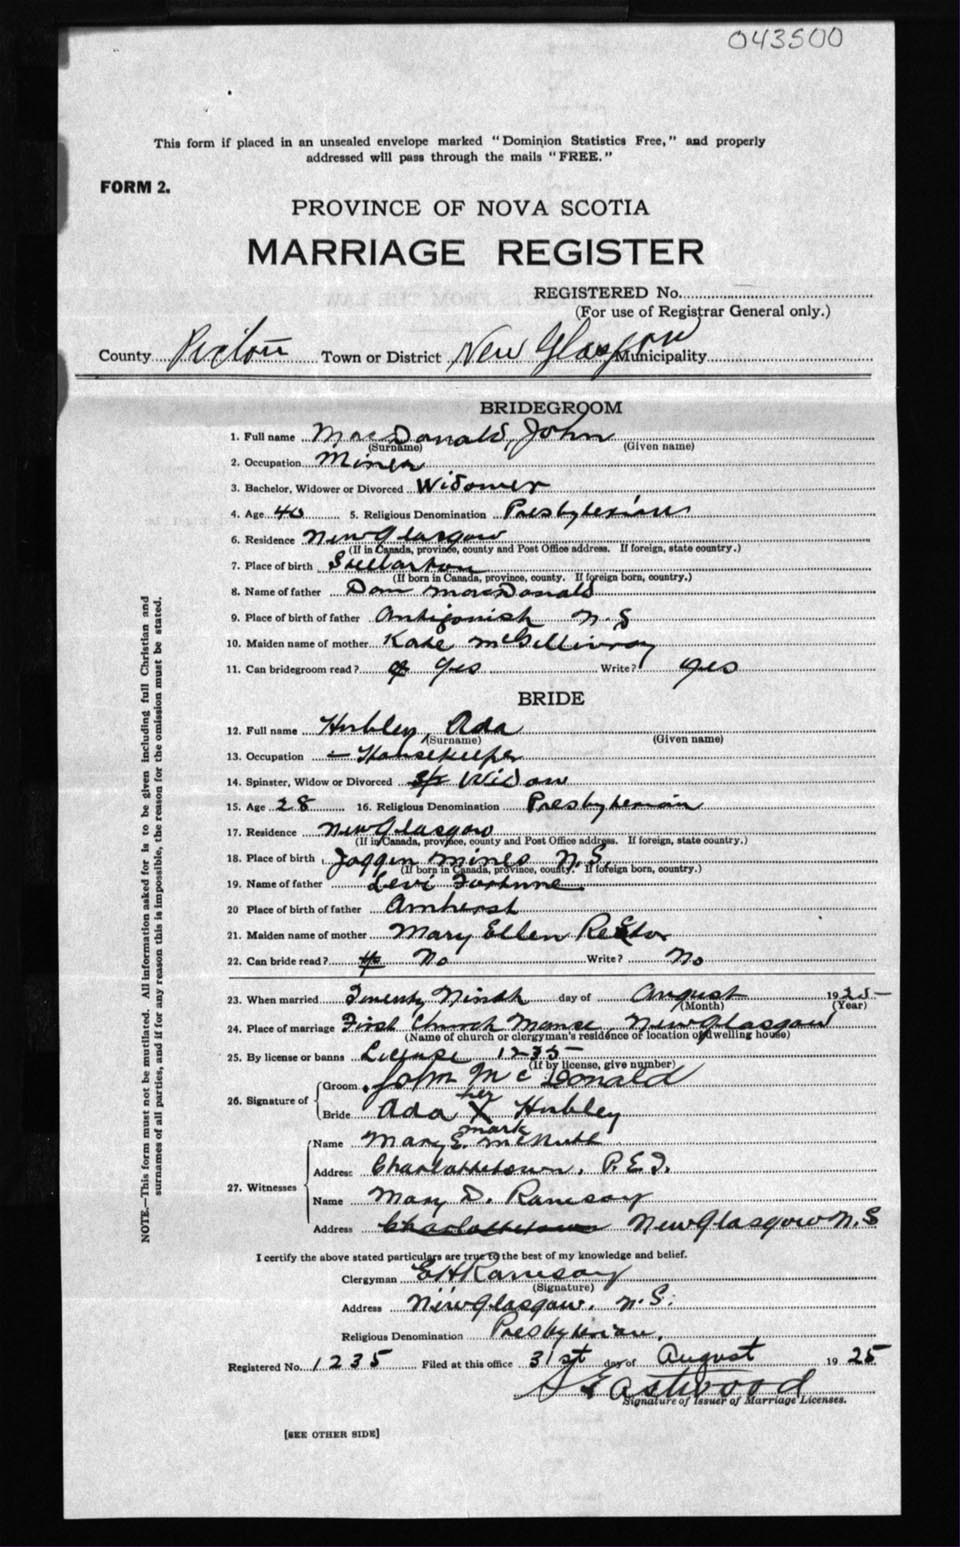 043500
This form if placed in an unsealed envelope marked "Dominion Statistics Free," and properly
addressed will pass through the mails "FREE."
FORM 2.
PROVINCE OF NOVA SCOTIA
MARRIAGE REGISTER
REGISTERED No.
(For use of Registrar General only.)
County Pictou Town or District New Glasgow Municipality
BRIDEGROOM
1. Full name MacDonald, John
(Surname) (Given name)
2. Occupation Miner
3. Bachelor, Widower or Divorced Widower
4. Age 40 5. Religious Denomination Presbyterian
6. Residence New Glasgow
(If in Canada, province, county and Post Office address. If foreign, state country.)
7. Place of birth Stellarton
(If born in Canada, province, county. If foreign born, country.)
8. Name of father Dan MacDonald
9. Place of birth of father Antigonish N.S
10. Maiden name of mother Kate McGillivray
11. Can bridegroom read? Yes Write? Yes
BRIDE
12. Full name Hubley, Ada
(Surname) (Given name)
13. Occupation Housekeeper
14. Spinster, Widow or Divorced Widow
15. Age 28 16. Religious Denomination Presbyterian
17. Residence New Glasgow
(If in Canada, province, county and Post Office address. If foreign, state country.)
18. Place of birth Joggin Mines N.S.
(If born in Canada, province, county. If foreign born, country.)
19. Name of father Levi Fortune
20 Place of birth of father Amherst
21. Maiden name of mother Mary Ellen Rector
22. Can bride read? No Write? No
23. When married Twenty Ninth day of August 1925
(Month) (Year)
24. Place of marriage First Church Manse New Glasgow
(Name of church or clergyman's residence or location of dwelling house)
25. By license or banns License 1235
(If by license, give number)
26. Signature of Groom John McDonald
her
Bride Ada X Hubley
mark
27. Witnesses Name Mary E. McNutt
Address Charlottetown. P.E.I.
Name Mary D. Ramsay
Address Charlottetown New Glasgow N.S
I certify the above stated particulars are true to the best of my knowledge and belief.
Clergyman E H Ramsay
(Signature)
Address New Glasgow. N.S.
Religious Denomination Presbyterian.
Registered No. 1235 Filed at this office 31st day of August 1925
S Eastwood
Signature of Issuer of Marriage Licenses.
[SEE OTHER SIDE]
NOTE.—This form must not be mutilated. All information asked for is to be given including full Christian and
surnames of all parties, and if for any reason this is impossible, the reason for the omission must be stated.